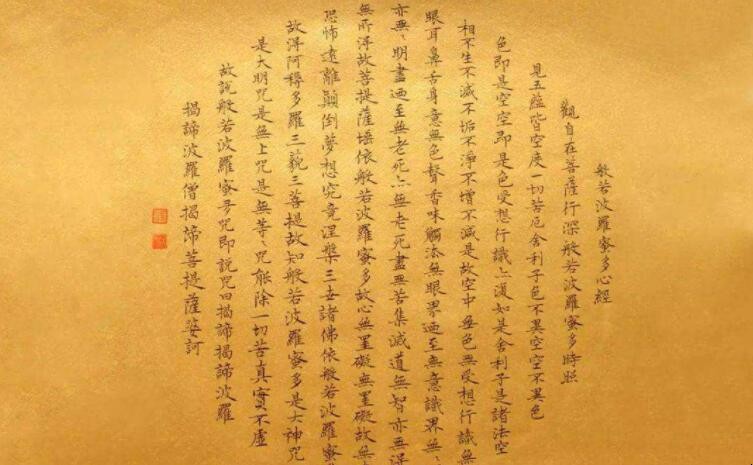 般若波羅蜜多心經
觀自在菩薩行深般若波羅蜜多時照
見五蘊皆空度一切苦厄舍利子色不異空空不異色
色即是空空即是色受想行識亦復如是舍利子是諸法空
相不生不滅不垢不淨不增不減是故空中無色無受想行識無
眼耳鼻舌身意無色聲香味觸法無眼界迺至無意識界無〻
亦無〻明盡迺至無老死亦無老死盡無苦集滅道無智亦無得
無所得故菩提薩埵依般若波羅蜜多故心無罣礙無罣礙故無
恐怖遠離顛倒夢想究竟涅槃三世諸佛依般若波羅蜜
故得阿耨多羅三藐三菩提故知般若波羅蜜多是大神咒
是大明咒是無上咒是無等〻咒能除一切苦真實不虛
故說般若波羅蜜多咒即說咒曰揭諦揭諦波羅
揭諦波羅僧揭諦菩提薩婆訶